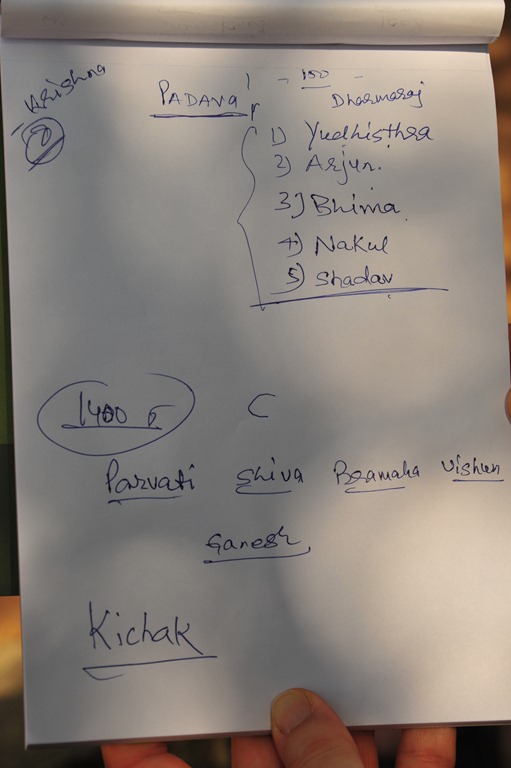 Krishna
8
PADAVA - 100 -
Dharmaraj
1) Yudhisthra
2) Arjun.
3) Bhima
4) Nakul
5) Shadav
1400 C
Parvati Shiva Bramaha Vishun
Ganesh
Kichak